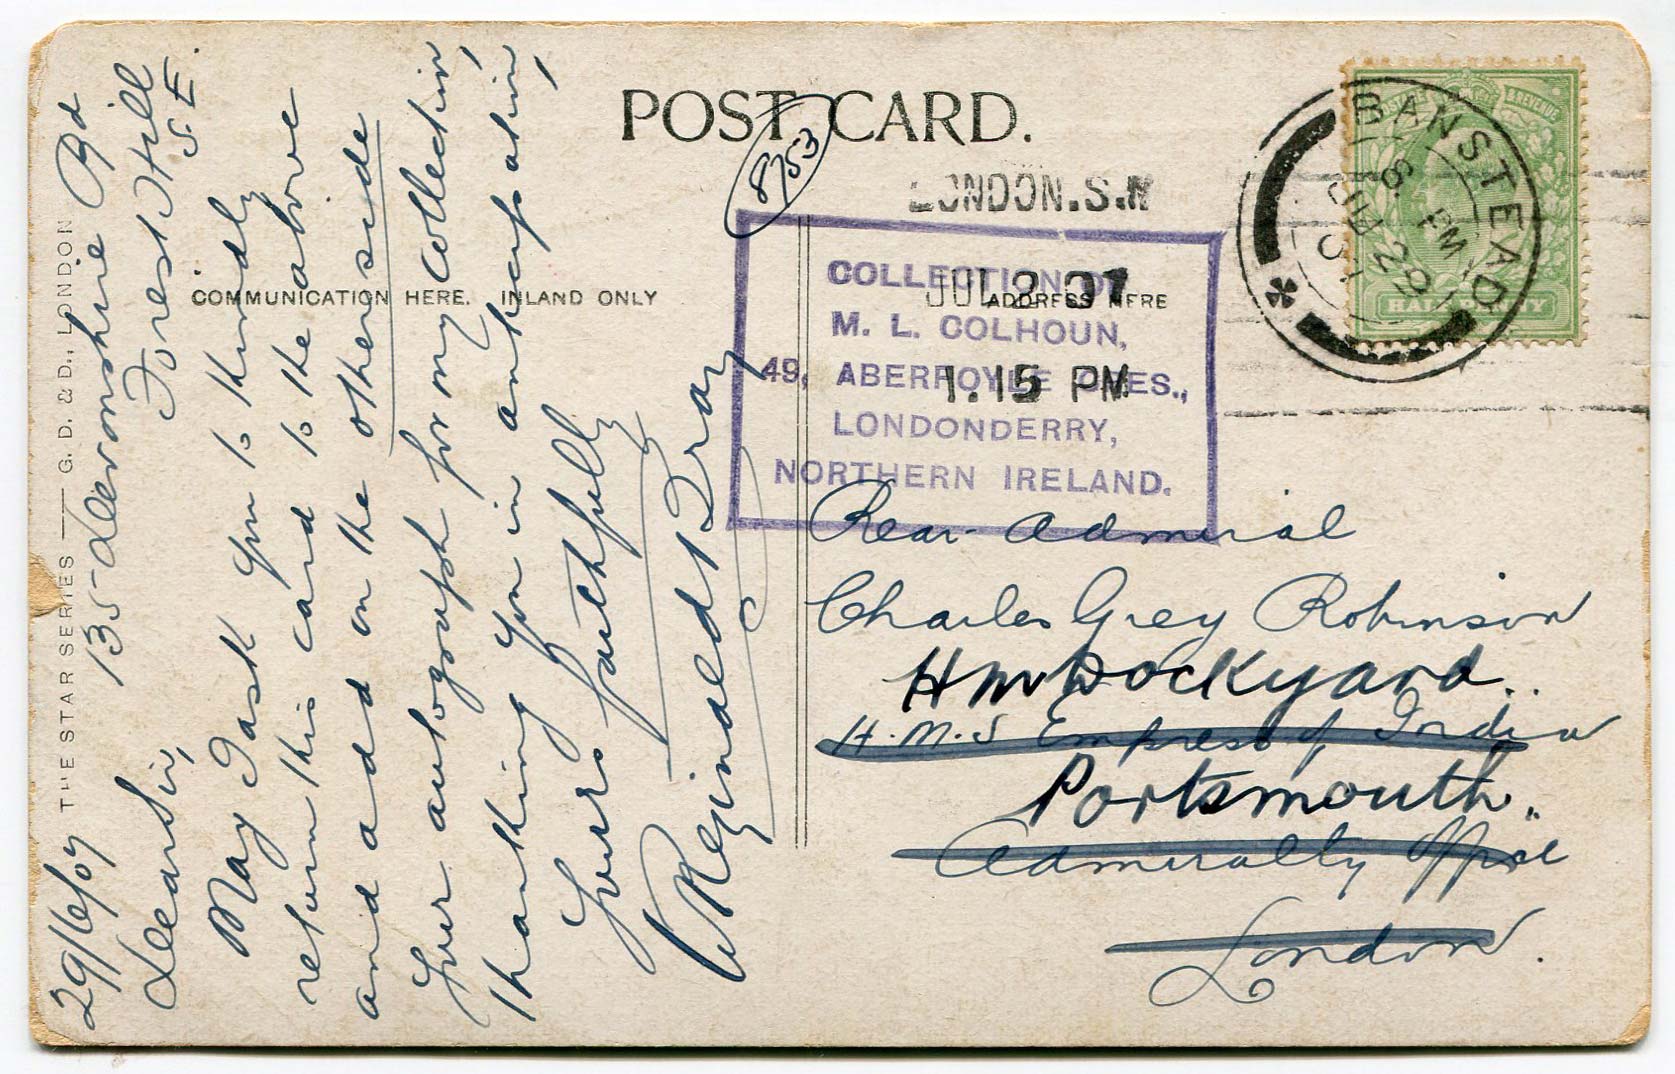 POST CARD.
8753
LONDON.S.W
JUL 2 07
1.15 PM
BANSTEAD
6 PM
JU 29
07
POSTAGE & REVENUE
HALF PENNY
COMMUNICATION HERE. INLAND ONLY
ADDRESS HERE
COLLECTION OF
M. L. COLHOUN,
49, ABERFOYLE CRES.,
LONDONDERRY,
NORTHERN IRELAND.
THE STAR SERIES — G. D. & D., LONDON
135 Devonshire Rd
Forest Hill
S E.
29/6/07
Dear Sir,
May I ask you to kindly
return this card to the above
and add on the other side
your autograph for my collection,
thanking you in anticipation,
Yours faithfully
W Reginald Bray
Rear Admiral
Charles Grey Robinson
HM Dockyard..
H.M.S Empress of India
Portsmouth.
Admiralty Office
London.